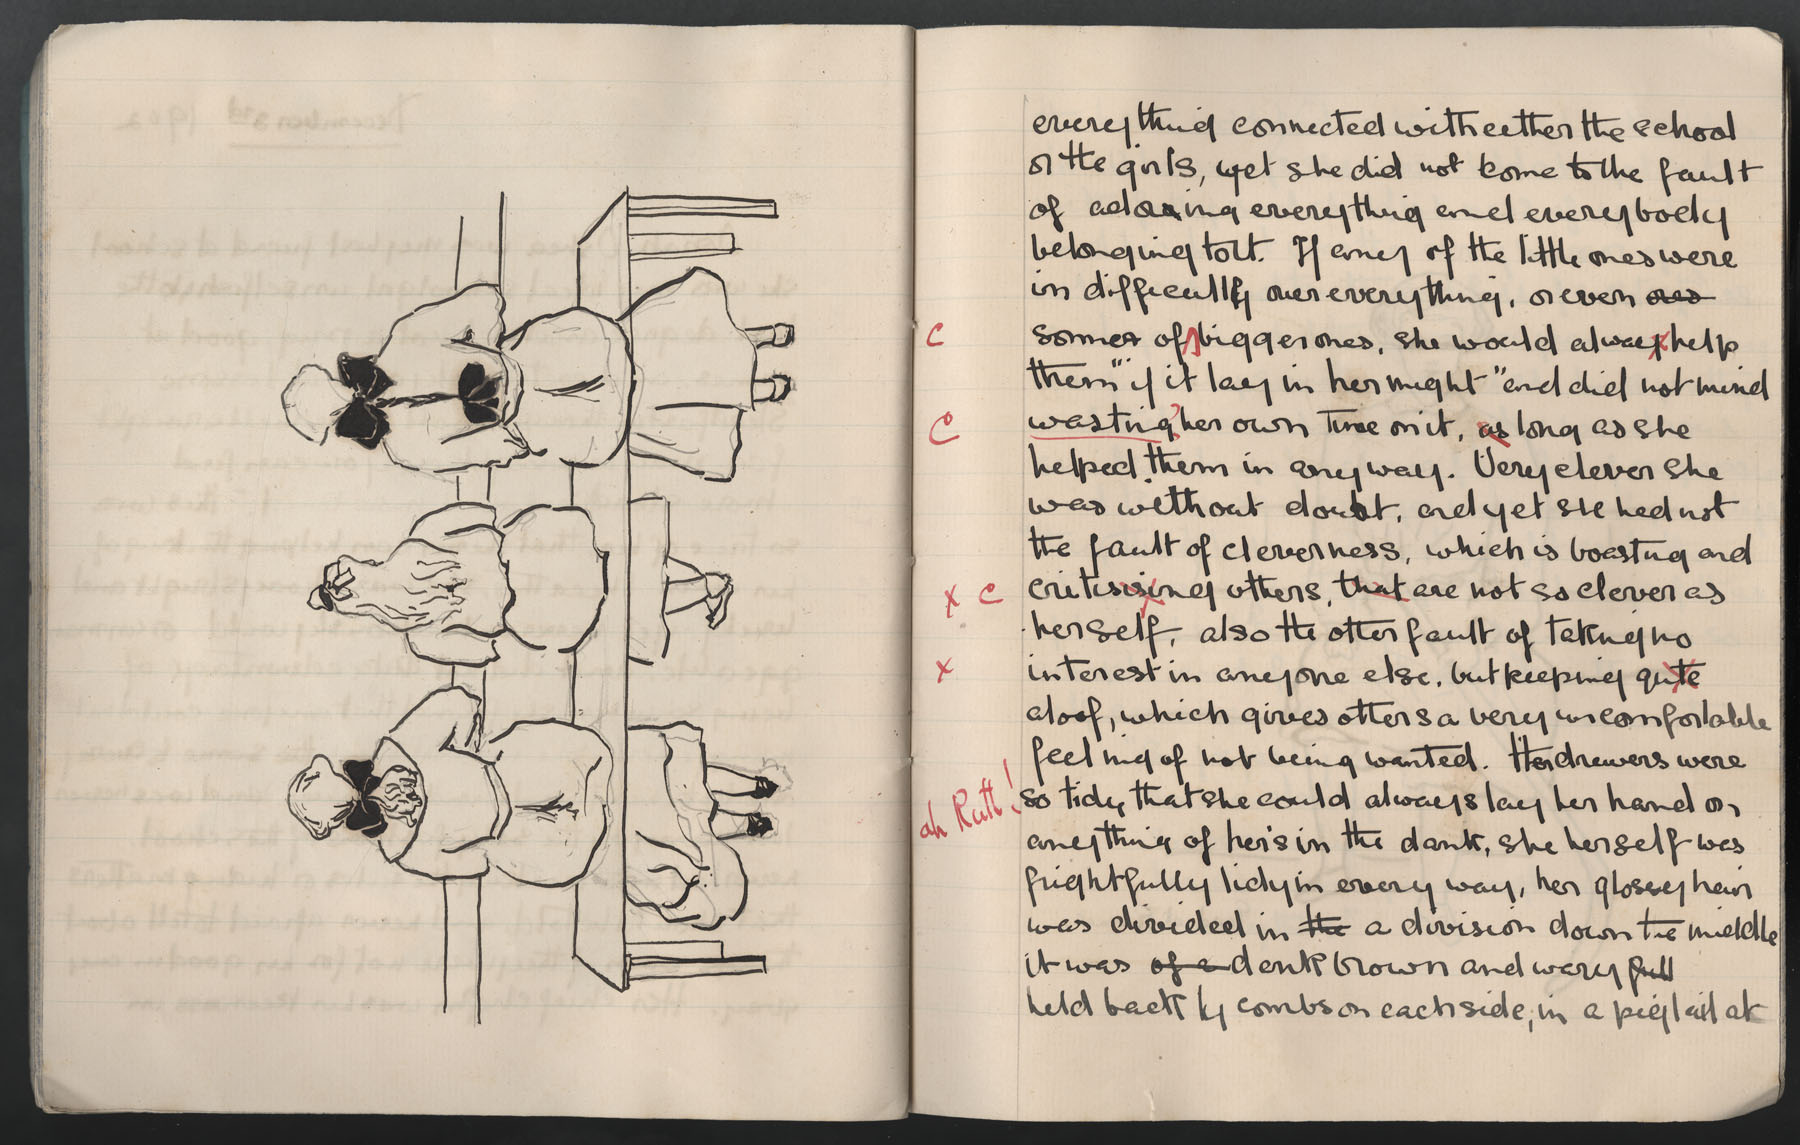 everything connected with either the school
or the girls, yet she did not come to the fault
of adoring everything and everybody
belonging to it. If any of the little ones were
in difficulty over everything, or even
some of bigger ones, she would always help
them "if it lay in her might" and did not mind
wasting her own time on it, as long as she
helped them in any way. Very clever she
was without doubt, and yet she had not
the fault of cleverness, which is boasting and
critisising others, that are not so clever as
herself, also the other fault of taking no
interest in anyone else, but keeping quite
aloof, which gives others a very uncomfortable
feeling of not being wanted. Her drawers were
so tidy, that she could always lay her hand on
anything of her's in the dark, she herself was
frightfully tidy in every way, her glossy hair
was divided in the a division down the middle
it was of a dark brown and wavy full
held back by combs on each side, in a pigtail at
c
c
x c
x
ah Ruth!
December 3rd 1902